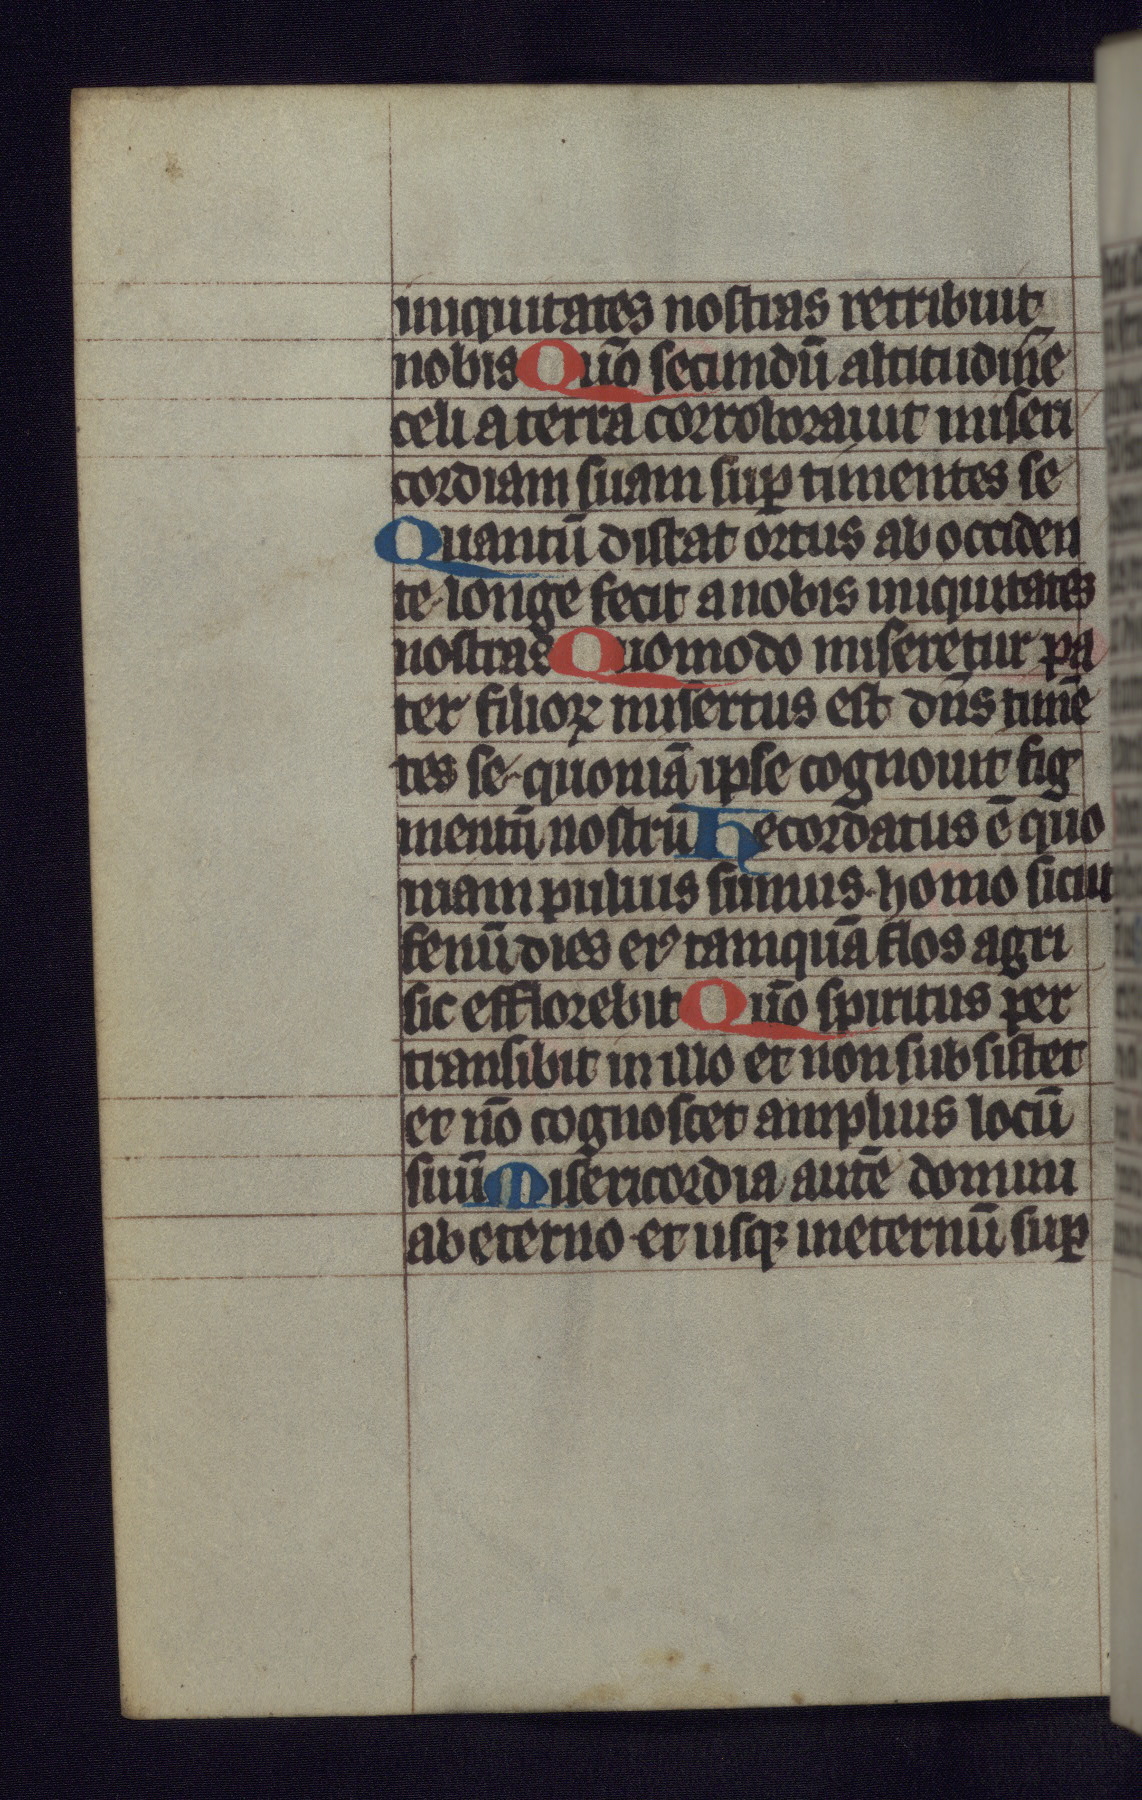 iniquitates nostras retribuit
nobis Quo̅ secundu̅ altitudine̅
celi a terra corroborauit miseri
cordiam suam sup̱ timentes se
Quantu̅ distat ortus ab occiden
te· longe fecit a nobis iniquitates
nostras Quomodo miseretur pa
ter filioꝝ misertus est dn̅s time̅
tes se· quonia̅ ipse cognouit fig
mentu̅ nostru̅ Recordatus e̅ quo
niam puluis sumus· homo sicut
fenu̅ dies eiꝰ tamqua̅ flos agri
sic efflorebit Quo̅ spiritus per
transibit in illo et non subsistet
et no̅ cognoscet amplius locu̅
suu̅ Misericordia aute̅ domini
ab eterno· et usqꝫ in eternu̅ sup̱